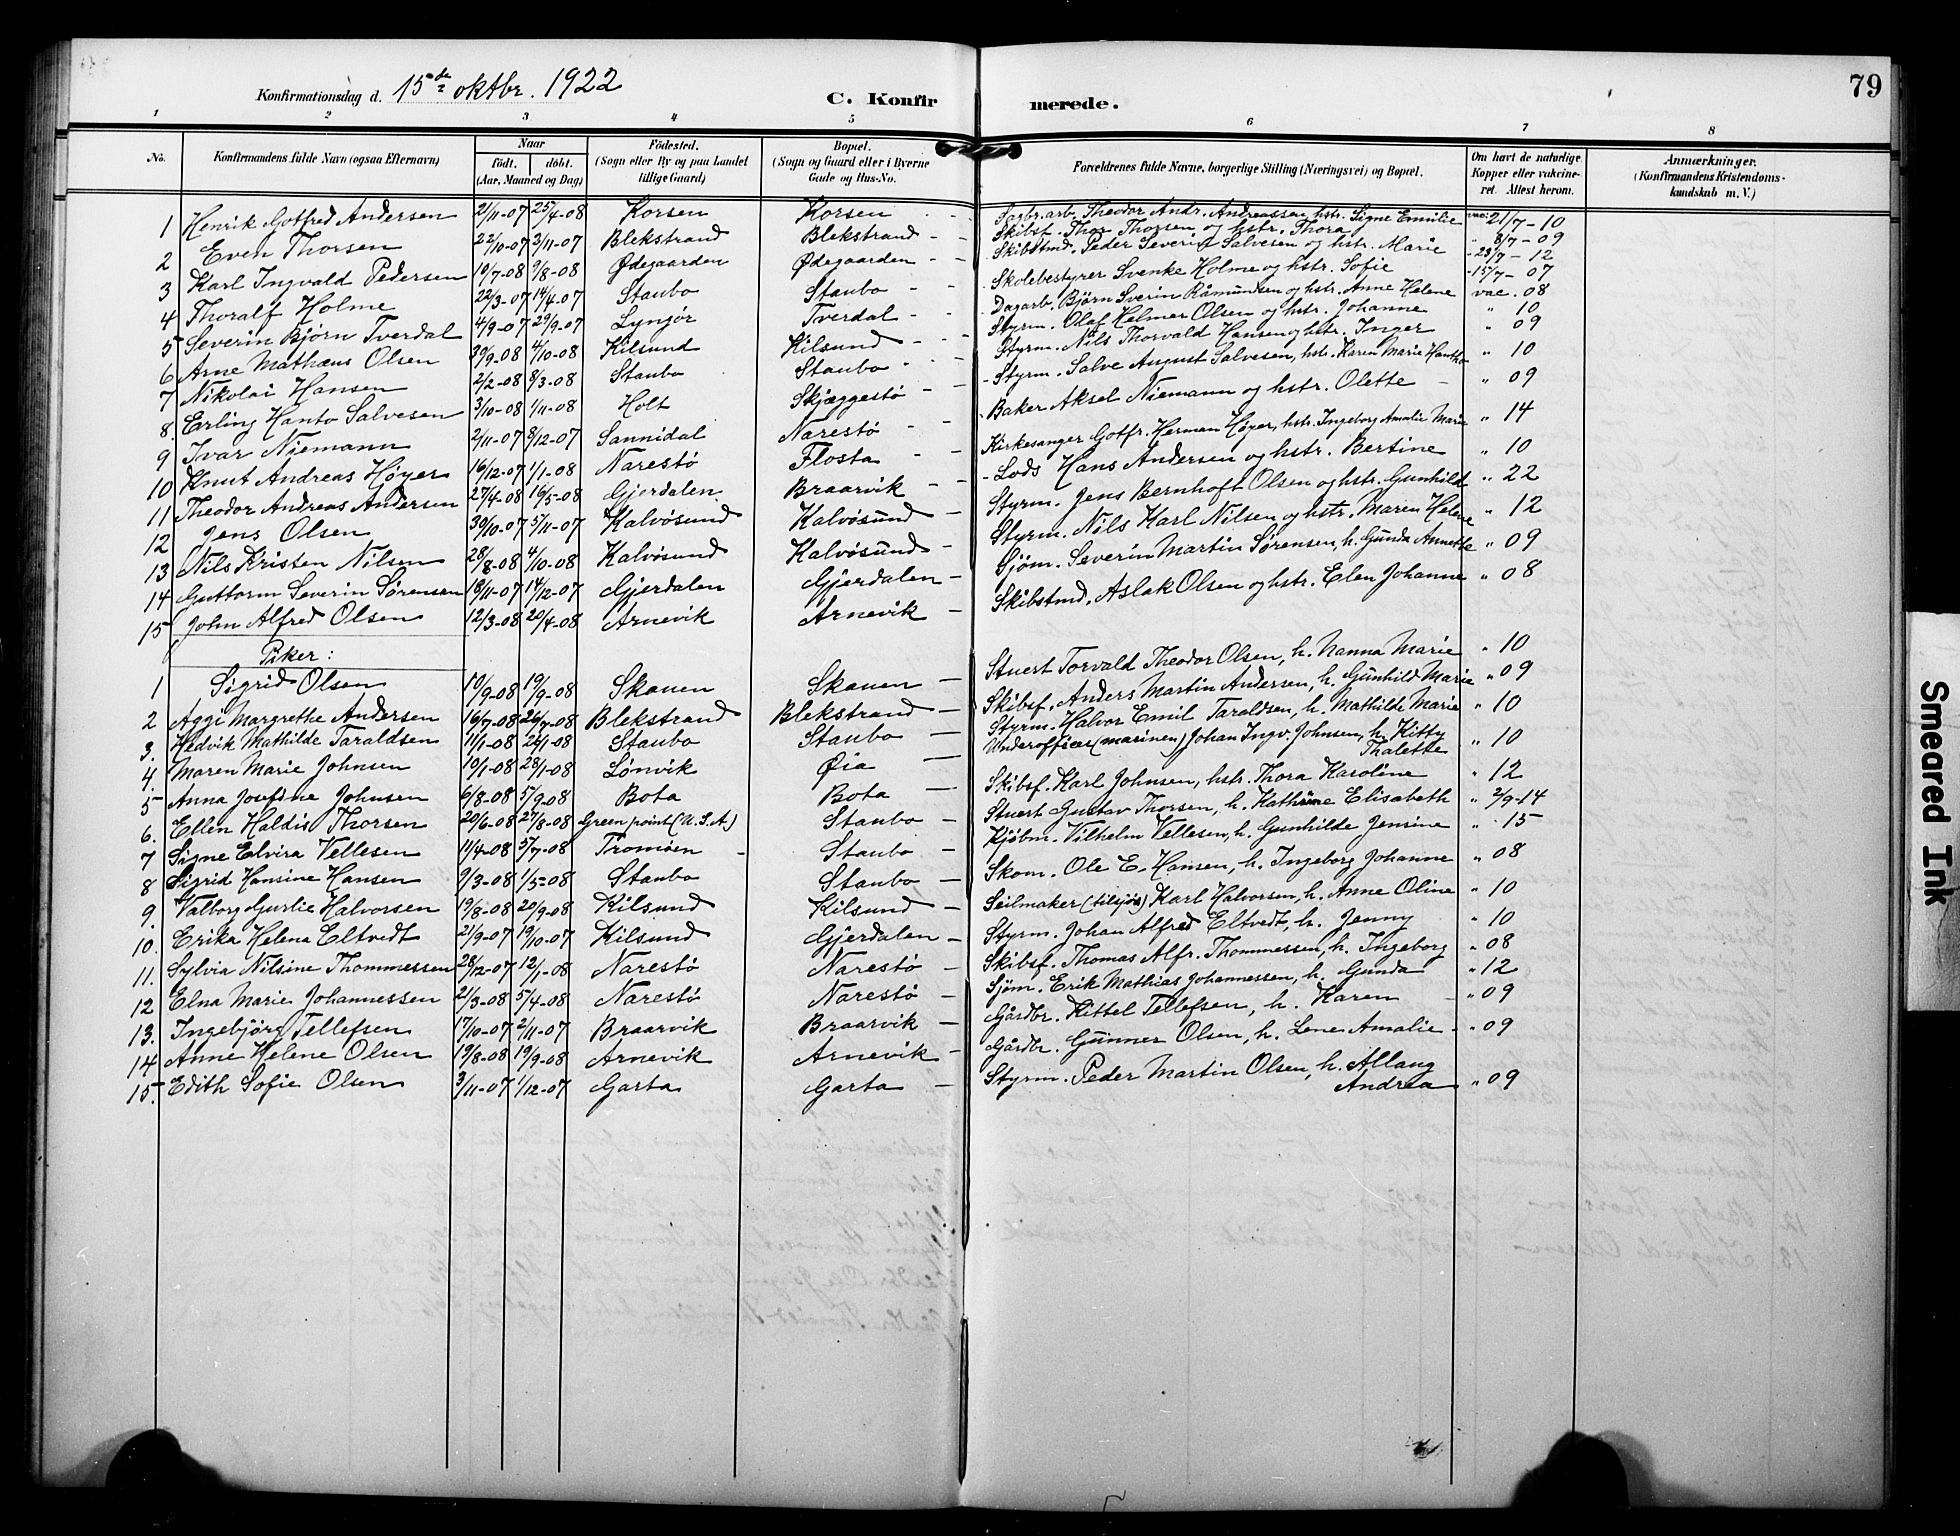 79
Konfirmationsdag d. 15de oktbr. 1922
C. Konfirmerede.
1 2 3 4 5 6 7 8
No. Konfirmandens fulde Navn (ogsaa Efternavn) Naar født, døbt. (Aar, Maaned og Dag) Fødested. (Sogn eller By og paa Landet tillige Gaard) Bopæl. (Sogn og Gaard eller i Byerne Gade og Hus-No. Forældrenes fulde Navne, borgerlige Stilling (Næringsvei) og Bopæl. Om havt de naturlige Kopper eller vakcineret. Attest herom. Anmærkninger. (Konfirmandens Kristendomskundskab m. V.)
1 Henrik Gotfred Andersen 2/11-07 25/4-08 Korsen Korsen Sagbr.arb. Theodor Andr. Andreassen hstr. Signe Emilie vac. 21/7-10
2 Even Thorsen 22/10-07 3/11-07 Blekstrand Blekstrand Skibsf. Thor Thorsen og hstr. Thora " 8/7-09
3 Karl Ingvald Pedersen 10/7-08 9/8-08 Ødegaarden Ødegaarden Skibstmd. Peder Severin Salvesen og hstr. Marie 23/7-12
4 Thoralf Holme 22/3-07 14/4-07 Staubo Staubo Skolebestyrer Svenke Holme og hstr. Sofie 15/7-07
5 Severin Bjørn Tverdal 4/9-07 29/9-07 Lyngør Tverdal Dagarb. Bjørn Sverin Råmundsen og hstr. Anne Helene vac. 08
6 Arne Mathæus Olsen 30/9-08 4/10-08 Kilsund Kilsund Styrm. Olaf Helmer Olsen og hstr. Johanne " 10
7 Nikolai Hansen 2/2-08 8/3-08 Staubo Staubo Styrm. Nils Thorvald Hansen og hstr. Inger " 09
8. Erling Hanto Salvesen 3/10-08 1/11-08 Holt Skjæggestø Styrm. Salve August Salvesen, hstr. Karen Marie Hantho " 10
9 Ivar Niemann 2/11-07 8/12-07 Sannidal Narestø Baker Aksel Niemann og hstr. Olette " 09
10 Knut Andreas Høyer 16/12-07 1/1-08 Narestø Flosta Kirkesanger Gotfr. Herman Høyer, hstr. Ingeborg Amalie Marie " 14
11 Theodor Andreas Andersen 27/4-08 16/5-08 Gjerdalen Braarvik Lods Hans Andersen og hstr. Bertine " 10
12 Jens Olsen 30/10-07 5/11-07 Kalvøsund Kalvøsund Styrm. Jens Bernhoft Olsen og hstr. Gunhild " 22
13 Nils Kristen Nilsen 28/8-08 4/10-08 Kalvøsund Kalvøsund Styrm. Nils Karl Nilsen og hstr. Maren Helene " 12
14 Guttorm Severin Sørensen 18/11-07 14/12-07 Gjerdalen Gjerdalen Sjøm. Severin Martin Sørensen, h. Gunda Annette " 09
15 John Alfred Olsen 12/3-08 20/4-08 Arnevik Arnevik Skibstmd. Aslak Olsen og hstr. Elen Johanne " 08
Piker:
1 Sigrid Olsen 10/9-08 19/9-08 Skauen Skauen Stuert Torvald Theodor Olsen, h. Nanna Marie " 10
2 Aggi Margrethe Andersen 16/7-08 26/7-08 Blekstrand Blekstrand Skibsf. Anders Martin Andersen, h. Gunhild Marie " 09
3. Hedvik Mathilde Taraldsen 11/1-08 26/1-08 Staubo Staubo Styrm. Halvor Emil Taraldsen, h. Mathilde Marie " 10
4. Maren Marie Johnsen 10/1-08 28/1-08 Lønvik Øia Underofficer (marinen) Johan Ingv. Johnsen, h. Kitty Thalette " 10
5 Anna Josefine Johnsen 6/8-08 5/9-08 Bota Bota Skibsf. Karl Johnsen, hstr. Thora Karoline " 12
6. Ellen Haldis Thorsen 20/6-08 27/8-08 Green point (U.S.A) Staubo Stuert Gustav Thorsen, h. Kathrine Elisabeth " 2/9-14
7 Signe Elvira Vellesen 11/4-08 5/7-08 Tromøen Staubo Kjøbm. Vilhelm Vellesen, h. Gunhilde Jensine " 15
8 Sigrid Hansine Hansen 9/3-08 1/5-08 Staubo Staubo Skom. Ole E. Hansen, h. Ingeborg Johanne " 08
9. Valborg Gurlie Halvorsen 19/8-08 20/9-08 Kilsund Kilsund Seilmaker (tilsjøs) Karl Halvorsen, h. Anne Oline " 10
10. Erika Helena Eltvedt 21/9-07 19/10-07 Kilsund Gjerdalen Styrm. Johan Alfred Eltvedt, h. Jenny " 10
11. Sylvia Nilsine Thommessen 28/12-07 12/1-08 Narestø Narestø Skibsf. Thomas Alfr. Thommessen, h. Ingeborg " 08
12 Elna Marie Johannessen 21/3-08 5/4-08 Narestø Narestø Sjøm. Erik Mathias Johannessen, h. Gunda " 12
13. Ingebjørg Tellefsen 17/10-07 2/11-07 Braarvik Braarvik Gårdbr. Kittel Tellefsen, h. Karen " 09
14 Anne Helene Olsen 19/8-08 19/9-08 Arnevik Arnevik Gårdbr. Gunner Olsen, h. Lene Amalie " 09
15. Edith Sofie Olsen 3/11-07 1/12-07 Garta Garta Styrm. Peder Martin Olsen, h. Allang Andrea " 09
Smeared Ink